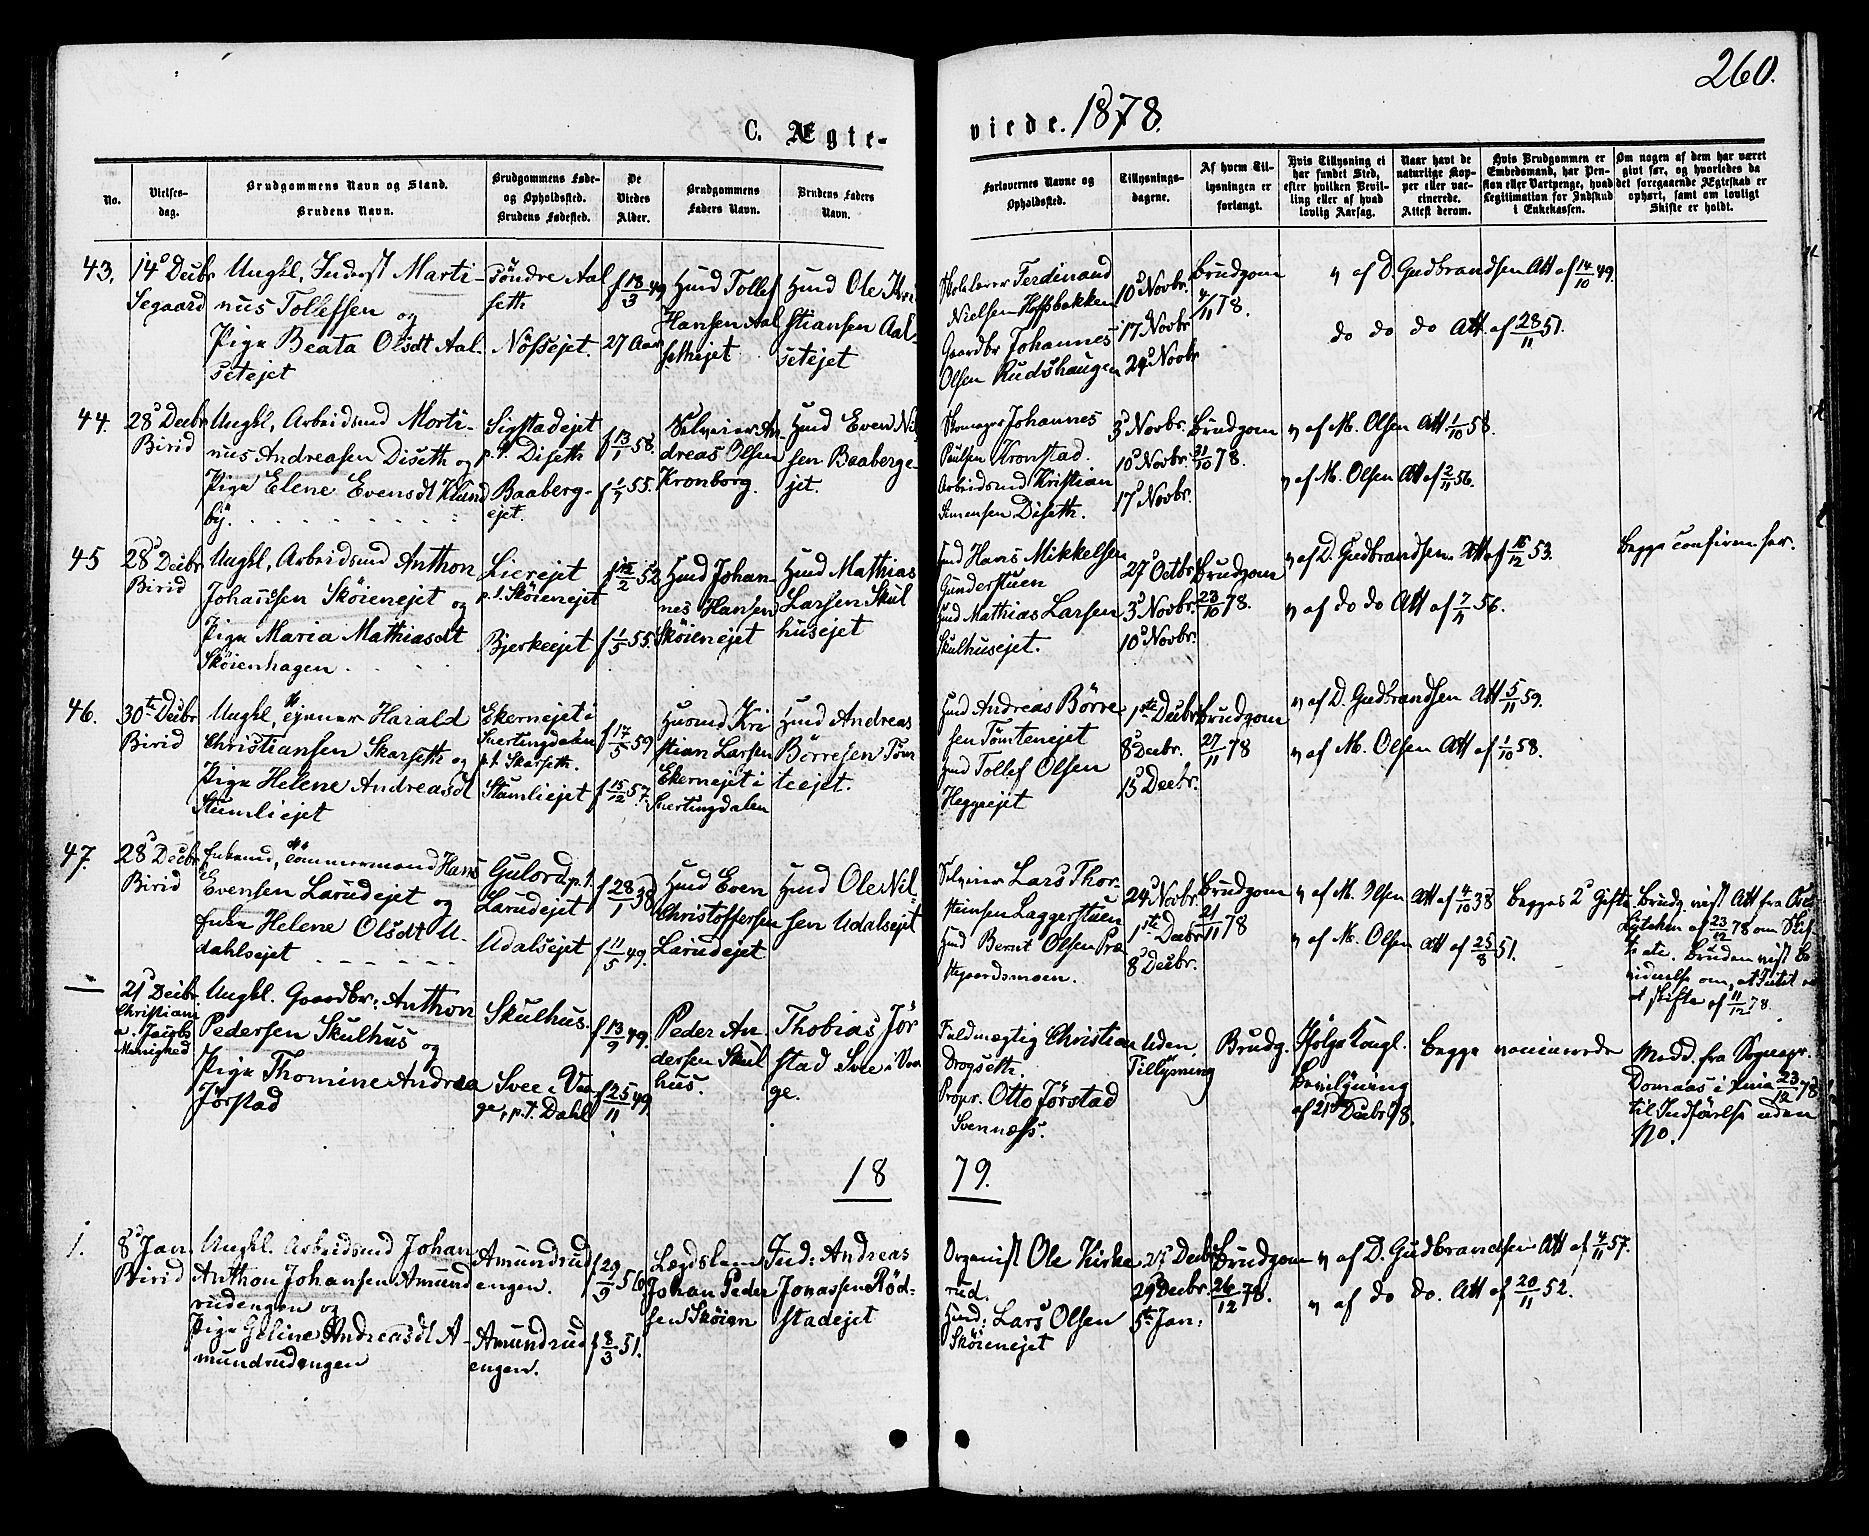 260.
C. Ægte-
viede. 1878.
No.
Vielses-
dag.
Brudgommens Navn og Stand.
Brudens Navn.
Brudgommens Føde-
og Opholdssted.
Brudens Fødested.
De
Viedes
Alder.
Brudgommens
Faders Navn.
Brudens Faders
Navn.
Forlovernes Navne og
Opholdssted.
Tillysnings-
dagene.
Af hvem Til-
lysningen er
forlangt.
Hvis Tillysning ei
har fundet Sted,
efter hvilken Bevil-
ling eller af hvad
lovlig Aarsag.
Naar havt de
naturlige Kop-
per eller vac-
cinerede.
Attest derom.
Hvis Brudgommen er
Embedsmand, har Pen-
sion eller Vartpenge, hvad
Legitimation for Indskud
i Enkekassen.
Om nogen af dem har været
gift før, og hvorledes da
det foregaaende Ægteskab er
ophørt, samt om lovligt
Skifte er holdt.
43.
14de Decbr
Segaard
Ungkl, Inderst Marti-
nus Tollefsen og
Pige Beata Olsdt Aal-
setejet
Söndre Aal
seth
Nössejet.
f 18/3 49
27 Aar
Hmd Tollef
Hansen Aal
sethejet
Hmd Ole Kri
stiansen Aal-
setejet
Skolelærer Ferdinand
Nielsen Hoffsbakken
Gaardbr Johannes
Olsen Rudshaugen
10 Novbr.
17 Novbr
24 Novbr
Brudgom
4/11 78.
v af D. Gudbrandsen Att af 14/10 49.
do do do Att. af 28/11 51.
44.
28 Decbr
Birid
Ungkl, Arbeidsmd Morti-
nus Andreasen Diseth og
Pige Elene Evensdt Klund
by.
Sigstadejet
p.t. Diseth
Baaberg-
ejet.
f 13/1 58.
f 1/5 55.
Selveier An-
dreas Olsen
Kronborg.
Hmd Even Nil
sen Baaberge-
jet.
Skomager Johannes
Paulsen Kronstad.
Arbeidsmd Kristian
Simensen Diseth.
3 Novbr.
10 Novbr.
17 Novbr.
Brudgom
31/10 78.
v af M. Olsen Att 1/10 58.
v af M. Olsen Att af 2/11 56.
45
28 Decbr
Birid
Ungkl, Arbeidsmd Anthon
Johanssen Sköienejet og
Pige Maria Mathiasdt
Sköienhagen
Lierejet
p.t. Sköienejet
Bjerkeejet
f 12/2 52
f 1/5 55.
Hmd Johan-
nes Hansen
Sköienejet
Hmd Mathias
Larsen Skul
husejet
Hmd Hans Mikkelsen
Gunderstuen
Hmd Mathias Larsen
Skulhusejet.
27 Octbr
3 Novbr.
10 Novbr.
Brudgom
23/10 78.
v af D. Gudbrandsen. Att af 16/12 53.
v af do do Att af 7/11 56.
Begge confirm før.
46.
30te Decbr
Birid
Ungkl, Harald
Christiansen Skarseth og
Pige Helene Andreasdt
Stumliejet
Ekernejet i
Snertingdalen
p.t. Skarseth.
Stumliejet
f 17/5 59
f 15/12 57.
Husmd Kri
stian Larsen
Ekernejet i
Snertingdalen
Hmd Andreas
Börresen Töm
teejet.
Hmd Andreas Börre
sen Tömtenejet
Hmd Tollef Olsen
Heggeejet
1ste Decbr
8 Decbr.
15 Decbr.
Brudgom
27/11 78
v af D. Gudbrandsen Att 5/11 59.
v af M. Olsen Att af 1/10 58.
47.
28 Decbr
Birid
Enkemd, Tømmermand Hans
Evensen Larudejet og
Enke Helene Olsdt U-
dahlsejet
Gulord p.t.
Larudejet
Udalsejet
f 28/1 38
f 11/5 49.
Hmd Even
Christoffersen
Larudejet
Hmd Ole Nil-
sen Udalsejet
Selveier Lars Thor-
steinsen Laggerstuen
Hmd Bernt Olsen Præ
stegaardsmoen.
24 Novbr.
1ste Decbr
8 Decbr.
Brudgom
21/11 78
v af M. Olsen Att af 4/10 38
v af M. Olsen Att af 25/8 51.
Begges 2 Gifte.
Brudg. vist Att fra
af 23/12 78 om Skif
te etc. Bruden vist Be
vidnelse om, at Intet
at skifte af 11/12 78.
—
21 Decbr
Christiania
Jacobs
Menighed
Ungkl. Gaardbr: Anthon
Pedersen Skulhus og
Pige Thomine Andrea
Jörstad
Skulhus.
Svee i Vaa
ge, p.t. Dahl
f 13/9 49.
f 25/11 49
Peder An
dersen Skul
hus.
Thobias Jör
stad Svee i Vaa
ge.
Fuldmegtig Christian
Drogseth.
Propr. Otto Jörstad
Svennæss.
Uden
Tillysning
Brudg.
Ifölge Kongl.
Bevilgning
af 21de Decbr 78.
Begge vacinerede
Medd. fra Sognepr.
Domaas i 23/12 78
til Indförelse uden
No.
1879.
1.
8 Jan.
Birid
Ungkl. Arbeidsmd Johan
Anthon Johansen Amund
rudengen og
Pige Geline Andreasdt A-
mundrudengen
Amundrud
engen.
Amundrud
engen.
f 29/9 56
f 8/3 51.
Lægdslem
Johan Peder
sen Sköien
Ind: Andreas
Jonassen Röd-
stadejet
Organist Ole Kirke
rud.
Hmd: Lars Olsen
Sköienejet
25 Decbr
29 Decbr.
5te Jan:
Brudgom
26/12 78.
v af D. Gudbrandsen Att af 4/11 57.
v af do do. Att af 20/11 52.